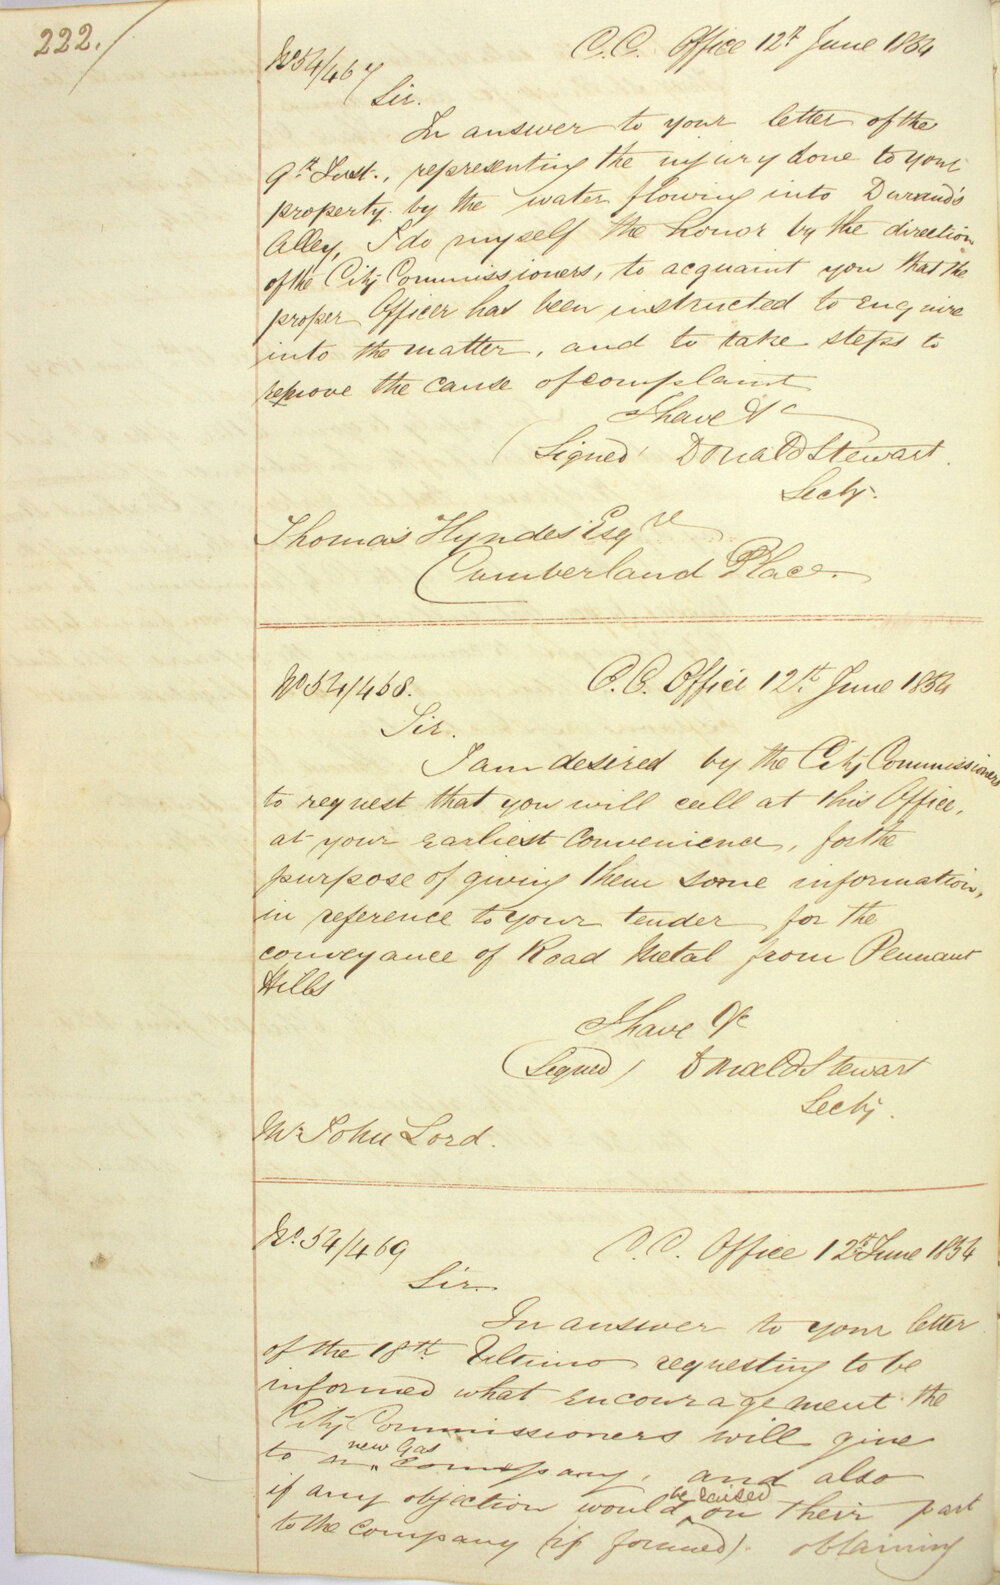 222.
No 54/467
C.C. Office 12th June 1854
Sir.
In answer to your letter of the
9th Inst., representing the injury done to your
property by the water flowing into Durand's
Alley, I do myself the honor by the direction
of the City Commissioners, to acquaint you that the
proper Officer has been instructed to enquire
into the matter, and to take steps to
remove the cause of complaint
I have &c
(Signed) Donald Stewart
Secty.
Thomas Hyndes Esqre
Cumberland Place.
No 54/468.
C.C. Office 12th June 1854
Sir.
I am desired by the City Commissioners
to request that you will call at this Office,
at your earliest convenience, for the
purpose of giving them some information,
in reference to your tender for the
conveyance of Road Metal from Pennant
Hills
I have &c
(Signed) Donald Stewart
Secty.
Mr John Lord.
No. 54/469
C.C. Office 12th June 1854
Sir.
In answer to your letter
of the 18th Ultimo requesting to be
informed what encouragement the
City Commissioners will give
to a new Gas company, and also
if any objection would be raised on their part
to the Company (if formed) obtaining